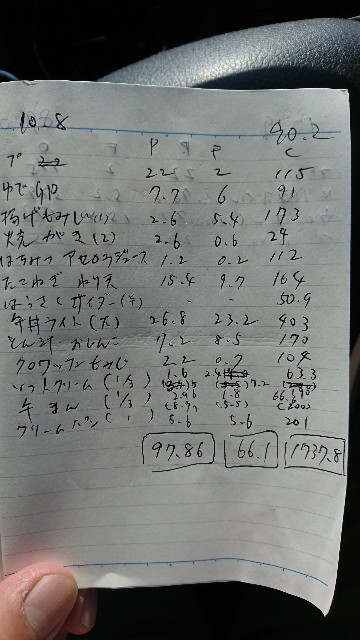 10.8 90.2
P F C
プ 22 2 115
ゆで 7.7 6 91
揚げもみじ(1) 2.6 5.4 173
焼がき(2) 2.6 0.6 24
はちみつアセロラジュース 1.2 0.2 112
たこねぎ 天 15.4 9.7 164
サイダー - - 50.9
牛丼ライト(大) 26.8 23.2 403
とん汁 おしんこ 7.2 8.5 170
クロワッサン もみじ 2.2 0.7 104
ソフトクリーム(1/3) 1.6 63.3
牛まん(1/3) (8.9) (5.5) (200)
クリームパン(1) 5.6 5.6 201
97.86 66.1 1737.8